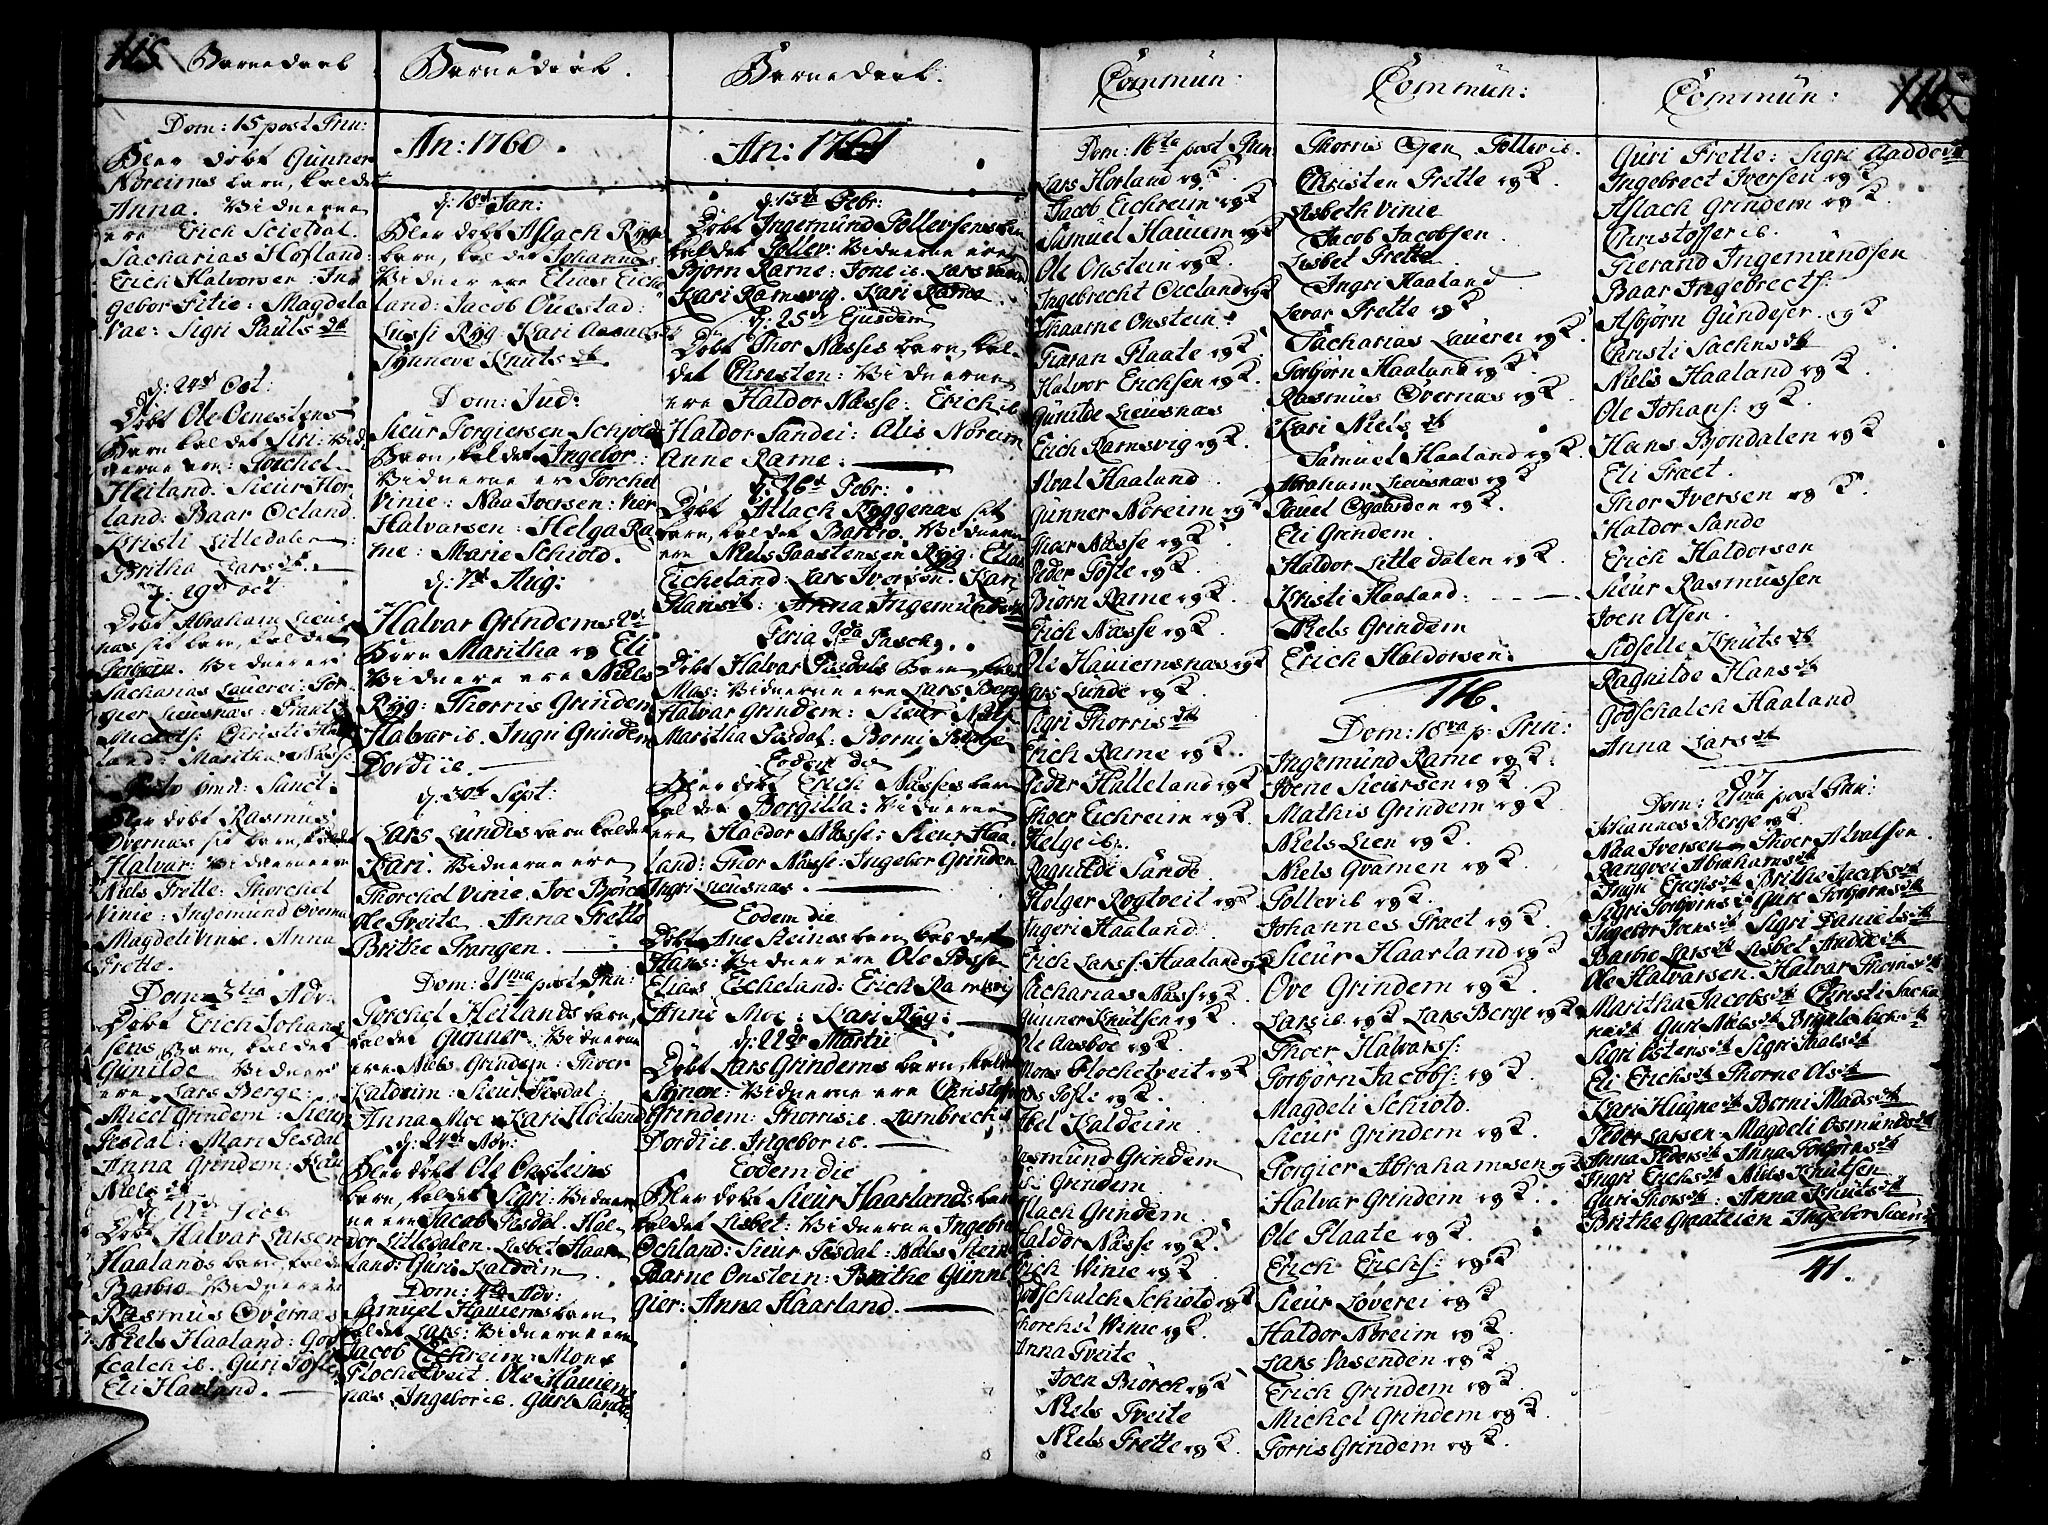 115
Barnedaab
Dom: 15 post Trin:
Blev døbt Gunner
Noreims barn, kaldet
Anna. Vidnerne
ere Erich
Sacharias Hofland:
Erich Halvorsen: In-
gebor Fitie: Magdela
Vae: Sigri Pauls dt
d: 24d Oct:
Døbt Ole Oenestens
Barn kaldet Siri: Vid
nerne ere: Torchel
Heiland. Sieur Hor-
land: Baar Ocland.
Kristi Litledalen:
Britha Lars dt.
d: 29d Oct
Døbt Abraham Lieus
nas sit barn, kaldet
Torbjørn. Vidner ere
Sacharias Lauerei: Tor-
gier Lieusnas:
Michels: Christi Haa
land: Maritha Nasse.
Festo Omn: Sanct:
Blev døbt Rasmus
Øvernas sit barn, kaldet
Halvar: Vidnerne ere
Niels Frette: Thorchel
Vinie: Ingemund Overna
Magdeli Vinie. Anna
Frette.
Dom: 3tia Adv:
Døbt Erich Johans
sens Barn, kaldet
Gunilde Vidner
ere Lars Berge:
Michel Grindem: Sieur
Tesdal: Mari Tesdal
Anna Grindem: Kari
Niels dt
Døbt Halvar Larsen
Haalands barn, kaldet
Barbro. Vidnerne
Rasmus Øvernas
Niels Haaland: God
scalch ib. Guri Tofte
Eli Haaland.
Barnedaab.
An: 1760.
d: 18d Jan:
Blev døbt Aslach Ryge
barn, kaldet Johannes
Vidner ere Elias Eiche
land: Jacob Ouestad:
Lussi Ryg. Kari Aamunds
Synneve Knuts dt.
Dom: Jud:
Sieur Torgiersen Schiold
Barn, kaldet Ingebor:
Vidnerne er Torchel
Vinie: Naa Iversen: Iver
Halvarsen: Helga Ra
me: Marie Schiold.
d: 7d Aug:
Halvar Grindems 2de
Børn Maritha og Eli
Vidnere ere Niels
Ryg: Thorris Grindem
Halvar ib. Ingri Grindem
Dordi ib.
d: 30t Sept:
Lars Lundis barn kaldet
Kari. Vidnerne ere
Thorchel Vinie. Joe Bjørck
Ole Tveite. Anna Frette
Brithe Trangen.
Dom: 21ma post Trin:
Torchel Heilands barn,
kaldet Gunner. Vidnerne
ere Niels Grindem: Thoer
Kaldeim: Sieur Tesdal
Anna Moe: Kari Heiland
d: 24d Nov:
Blev døbt Ole Onsteins
barn, kaldet Sigri: Vidner
ne ere Jacob Tesdal. Hal-
dor Litledalen. Lisbet Haa
land: Guri Kaldeim
Dom: 4ta Adv:
Samuel Hauiems barn
kaldet Lars: Vidnerne ere
Jacob Eichreim: Mons
Plochetveit. Ole Hauiems
nas Ingebor ib. Guri Sande
Barnedaab.
An: 1761
d: 13d Febr:
Døbt Ingemund Tollevsens barn
kaldet Tollev: Vidnerne ere
Bjørn Rame: Jone ib. Lars
Kari Ramsvig. Kari Rame.
d: 25de Ejusdem
Døbt Thor Nasses barn, kal-
det Christen: Vidnerne
ere Haldor Nasse: Erich ib
Haldor Sandei: Alis Noreim
Anne Rame:
d: 26d Febr:
Døbt Aslach Ryggenas sit
barn, kaldet Barbro. Vidnerne
ere Niels Taastensen Ryg: Elias
Eicheland: Lars Iversen. Kari
Hans dt: Anna Ingemunds
Feria 2da Pasch.
Døbt Halvar Tesdals Barn
Mas: Vidnerne ere Lars Berge
Halvar Grindem: Sieur Niels
Maritha Tesdal: Borni
Eodem die
Blev døbt Erich Nasses barn
kaldet Borgilla: Vidnerne
ere Haldor Nasse: Sieur Haa-
land: Thor Nasse: Ingebor Grinden
Ingri Lieusnas.
Eodem die
Døbt Ane Steinas barn kaldet
Hans: Vidner ere Ole
Elias Eicheland: Erich Ramsvig
Anne Moe: Kari Ryg:
d: 22de Martii
Døbt Lars Grindems barn, kaldet
Synneve: Vidnerne ere Christoffer
Grindem: Thorris ib. Lambrech ib
Dordi ib. Ingebor ib.
Eodem die
Blev døbt Sieur Haarlands barn
kaldet Lisbet: Vidnerne Ingebre
Ochland: Sieur Tesdal: Niels Stein
Baarne Onstein: Brithe Gunne
gier: Anna Haarland.
Commun:
Dom: 16ta post Trin
Lars Horland og K.
Jacob Eichreim og K
Samuel Hauiem og K
Ole Onstein og K.
Ingebrecht Ocland og K
Thaarne Onstein:
Tiaran Plaate og K.
Halvor Erichsen og K.
Gunilde Lieusnas
Erich Ramsvig og K.
Alval Haaland
Gunner Noreim og K
Thoer Nasse og K.
Peder Tofte og K.
Biørn Rame og K.
Erich Nasse og K.
Ole Hauiemsnas og K
Lars Lunde og K.
Sigri Thorris dt
Erich Rame og K.
Peder Halleland og K
Thoer Eichreim og K.
Helge ib.
Ragnilde Sande.
Holger Rogtveit og K
Ingeri Haaland
Erich Larss. Haaland og K
Sacharias Nasse og K.
Gunner Knutsen og K.
Ole Aasboe og K.
Mons Plochetveit og K
Tofte og K.
Abel Kaldeim.
Asmund Grindem
Grindem
Aslach Grindem
Haldor Nasse og K.
Erich Winie og K.
Godschalch Schiold og K
Thorchel Winie og K.
Anna Tveite
Joen Biørck og K
Niels Tveite
Niels Frette og K.
Commun:
Thorris Ojen Tollev ib.
Christen Frette og K.
Lisbeth Vinie
Jacob Jacobsen.
Lisbet Frette
Ingri Haaland
Iverar Frette og K
Sacharias Lauerei og K.
Torbjørn Haaland og K.
Rasmus Øvernas og K.
Kari Niels dt
Samuel Haaland og K.
Abraham Lieusnas og K
Pauel Ogaarden og K.
Eli Grindem.
Haldor Litle dalen og K
Kristi Haaland:
Niels Grindem
Erich Haldorsen:
116.
Dom: 18va p. Trin:
Ingemund Rame og K.
Joene Sieursen og K.
Mathis Grindem og K.
Niels Lien og K.
Niels Qvamen og K.
Tollev ib og K.
Johannes Traet og K.
Sieur Haarland og K
Ove Grindem og K.
Lars ib. og K Lars Berge og K
Thoer Halvarss:
Torbjørn Jacobs: og K.
Magdeli Schiold.
Sieur Grindem og K.
Torgier Abrahamsen og K
Halvar Grindem og K.
Ole Plaate og K.
Erich Erichs: og K
Sieur Løverei og K
Haldor Noreim og K
Lars Vasenden og K.
Erich Grindem og K.
Michel Grindem og K.
Torris Grindem og K.
Commun:
116
Guri Frette: Sigri Aaddevi
Ingebrect Iversen og K
Aslach Grindem og K.
Christoffer ib.
Tierand Ingemundsen
Baar Ingebrects:
Asbjørn Gundeser. og K
Christi Sachris dt
Niels Haaland og K.
Ole Johans: og K.
Hans Bjondalen og K
Eli Traet.
Thor Iversen og K.
Haldor Sande
Erich Haldorsen
Sieur Rasmussen
Joen Olsen.
Sidselle Knuts dt
Ragnilde Hans dt
Godschalch Haaland
Anna Lars dt
87
Dom: 21ma post Trin:
Johannes Berge og K.
Naa Iversen. Thoer Alvalsen.
Rangvei Abrahams dt
Ingri Erichs dt Brithe Jacobs dt
Sigri Torbjørns dt Guri Torbjørns dt
Ingebor Ivers dt. Sigri Daniels dt
Barbro Lars dt Lisbet Aadde dt
Ole Halvarsen. Halvar Thomsen
Maritha Jacobs dt Christi Sacha
rias dt Guri Niels dt
Sigri Ostens dt Sigri Paals dt
Eli Erichs dt Thorne Ols dt
Kari Hugne dt Borni Mads dt
Peder Larsen. Magdeli Osmunds dt
Anna Peders dt Anna Torbjørns dt
Ingri Erichs dt. Niels Knutsen
Guri Thors dt. Anna Knuts dt
Brithe Graateien Ingebor Sieurs
41.